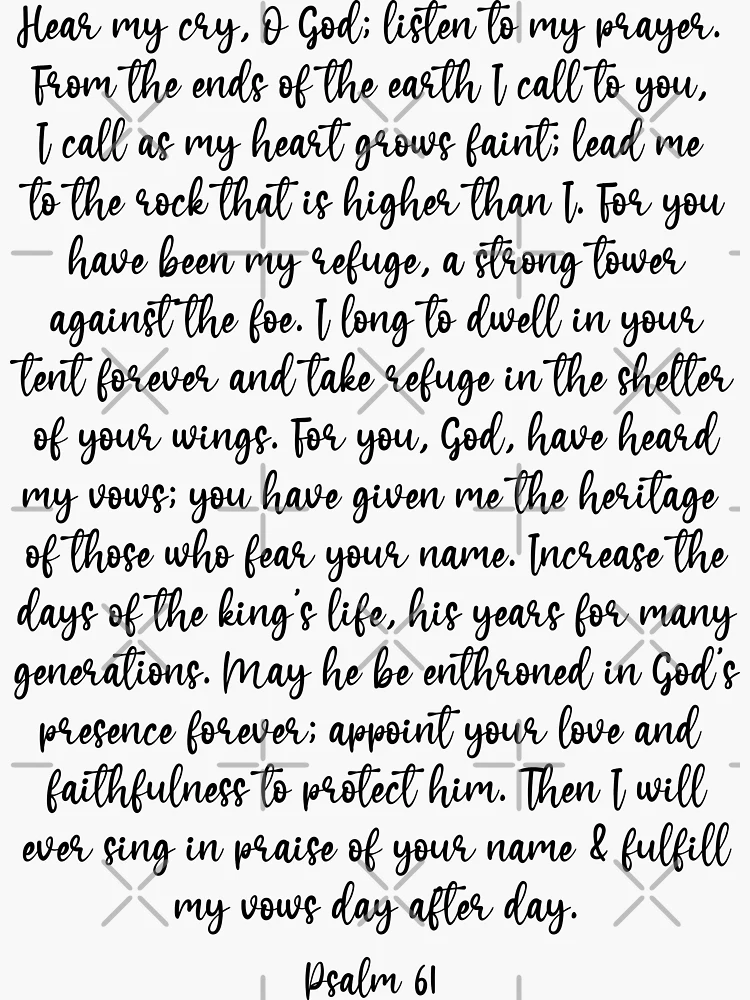 Hear my cry, O God; listen to my prayer.
From the ends of the earth I call to you,
I call as my heart grows faint; lead me
to the rock that is higher than I. For you
have been my refuge, a strong tower
against the foe. I long to dwell in your
tent forever and take refuge in the shelter
of your wings. For you, God, have heard
my vows; you have given me the heritage
of those who fear your name. Increase the
days of the king's life, his years for many
generations. May he be enthroned in God's
presence forever; appoint your love and
faithfulness to protect him. Then I will
ever sing in praise of your name & fulfill
my vows day after day.
Psalm 61